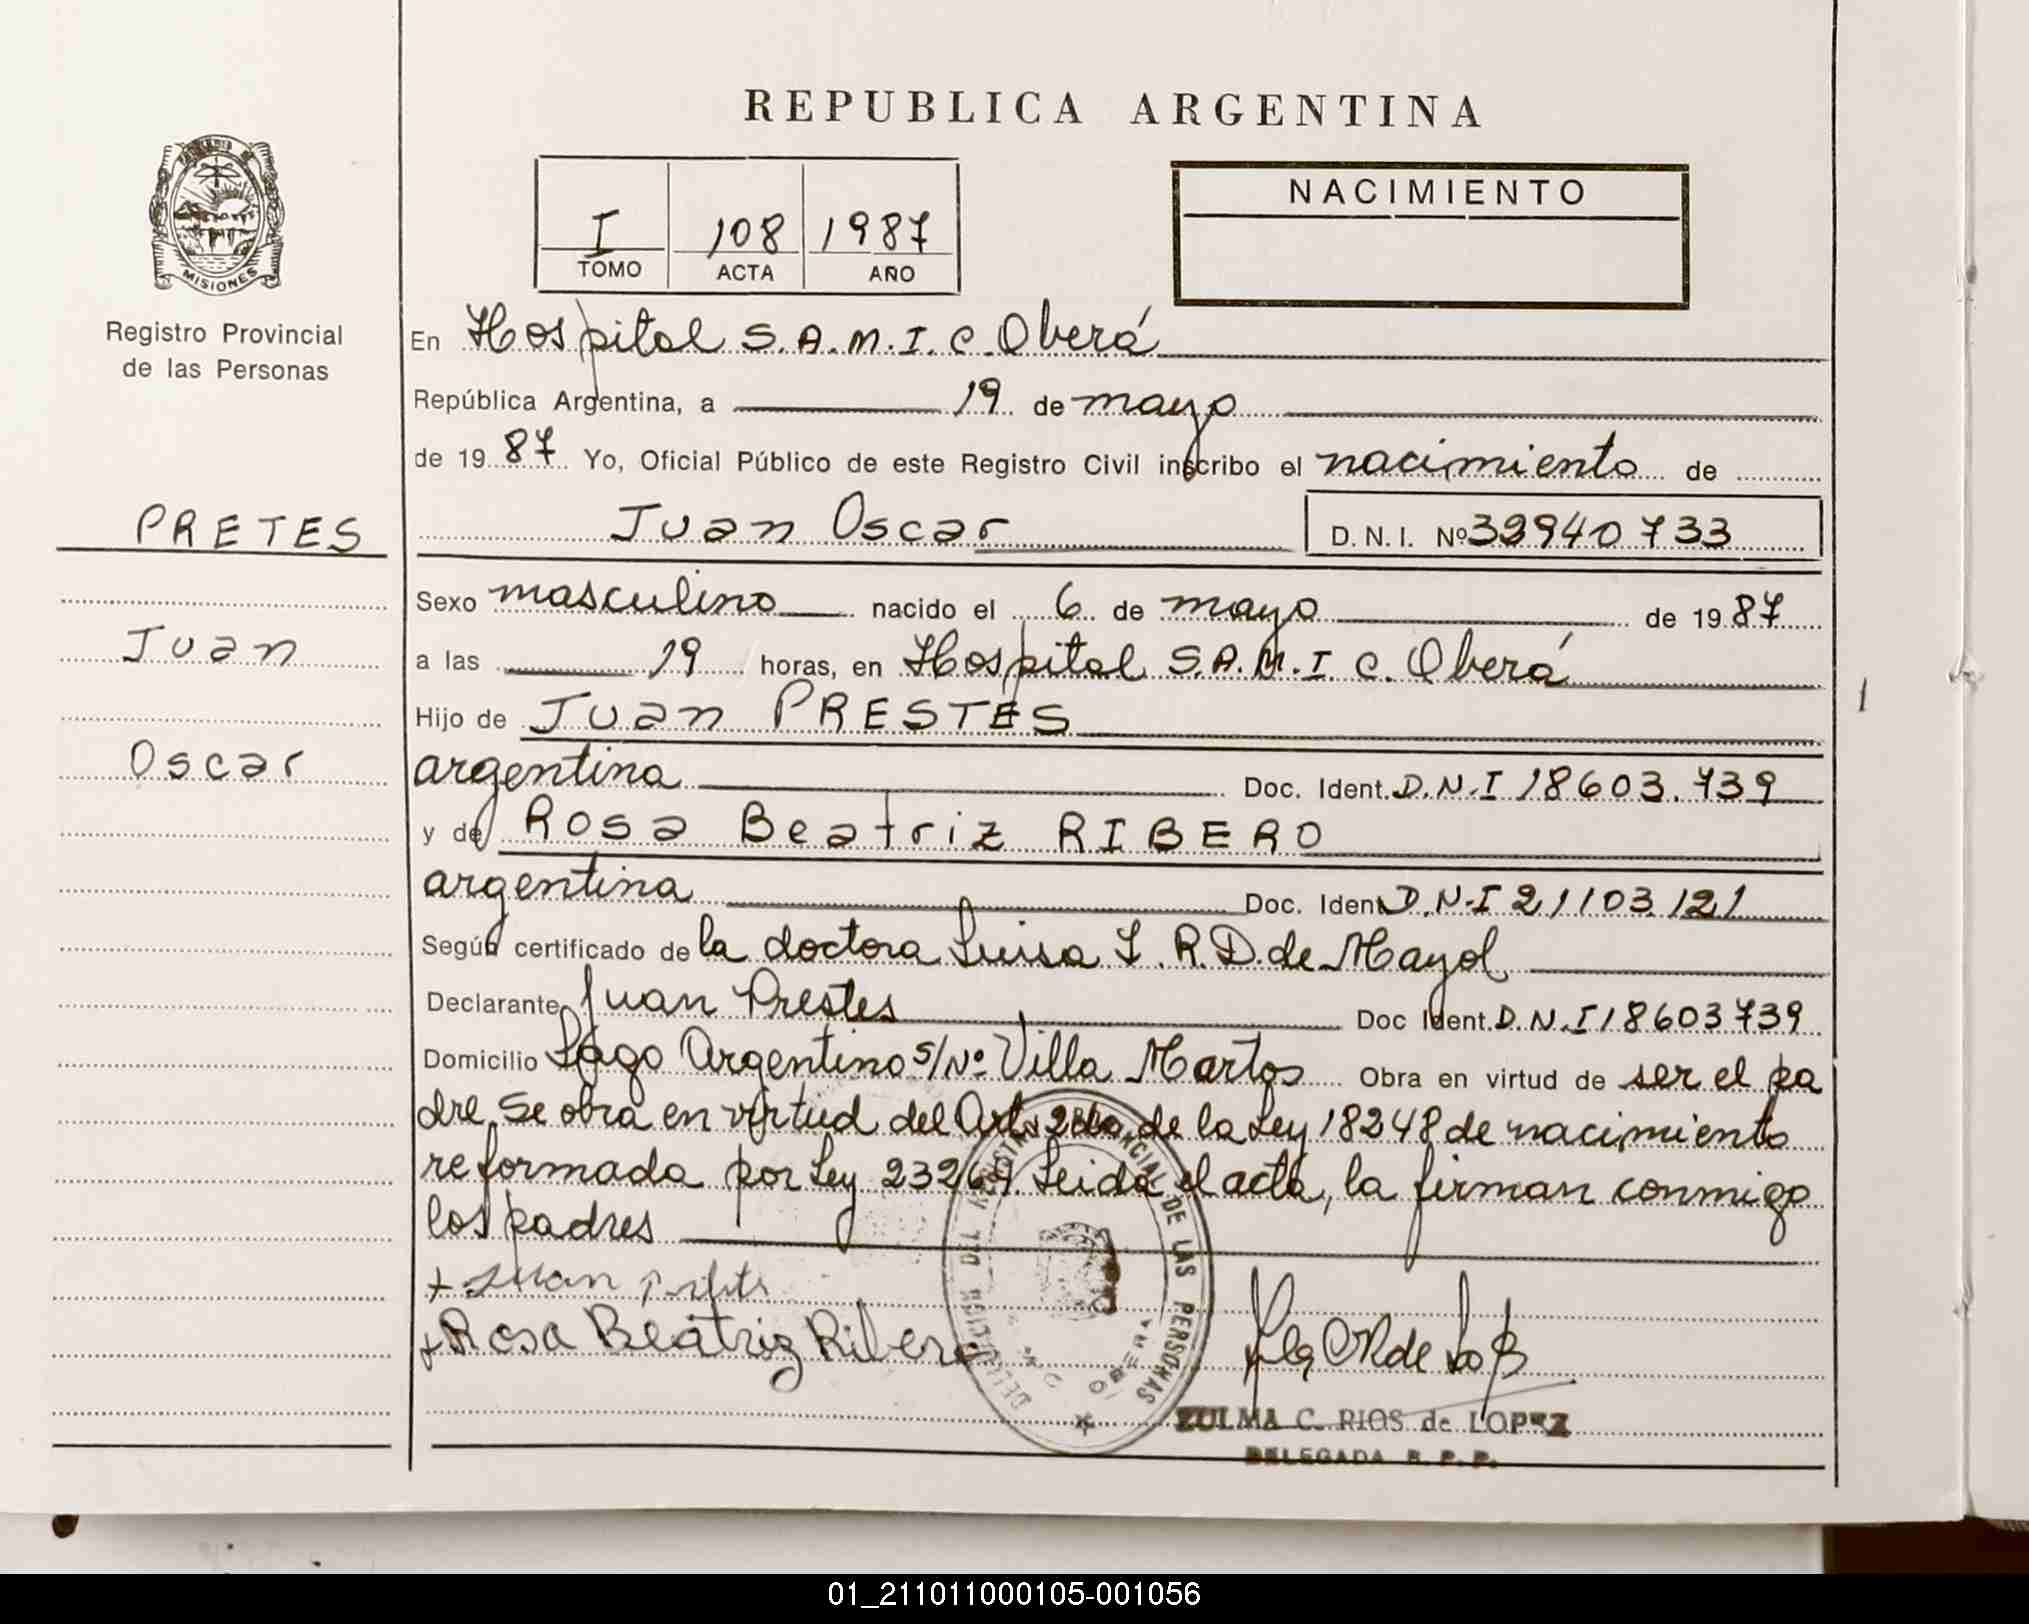 REPUBLICA ARGENTINA
I 108 1987
TOMO ACTA AÑO
NACIMIENTO
MISIONES
Registro Provincial
de las Personas
En Hospital S.A.M.I.C. Oberá
República Argentina, a 19 de mayo
de 1987 Yo, Oficial Público de este Registro Civil inscribo el nacimiento de
PRETES
Juan Oscar D.N.I. Nº 32940733
Sexo masculino nacido el 6 de mayo de 1987
Juan
a las 19 horas, en Hospital S.A.M.I.C. Oberá
Hijo de Juan PRESTES
Oscar
argentina Doc. Ident. D.N.I 18603.739
y de Rosa Beatriz RIBERO
argentina Doc. Ident D.N.I 21103121
Según certificado de la doctora Luisa L.R.D. de Mayol
Declarante Juan Prestes Doc Ident. D.N.I 18603739
Domicilio Lago Argentino s/Nº Villa Martos Obra en virtud de ser el pa
dre se obra en virtud del Art. 2do de la Ley 18248 de nacimiento
reformada por Ley 23264. Leida el acta, la firman conmigo
los padres
+ Juan
+ Rosa Beatriz Ribero
PROVINCIAL DE LAS PERSONAS
OBERA
ZULMA C. RIOS de LOPEZ
DELEGADA R. P. P.
01_211011000105-001056